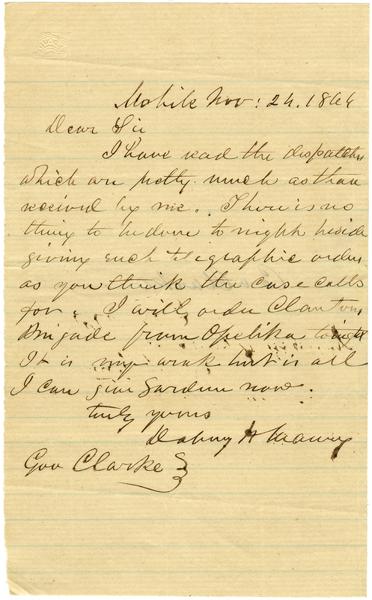 Mobile Nov: 24. 1864
Dear Sir
I have read the dispatches
which are pretty much as those
received by me. There is no
thing to be done to night beside
giving such telegraphic orders
as you think the case calls
for. I will order Clantons
Brigade from Opelika to
It is very weak but is all
I can give Gardner now.
truly yours
Dabney H Maury
Gov Clarke